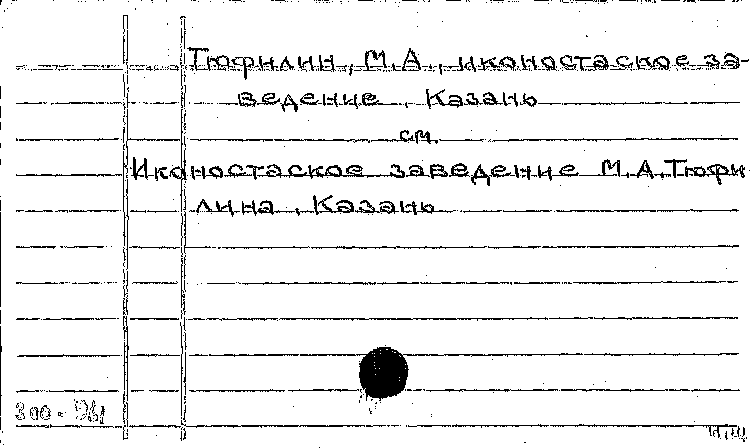 Тюфилин, М.А., иконостаское за-
ведение, Казань
см.
Иконостаское заведение М.А.Тюфи-
лина, Казань